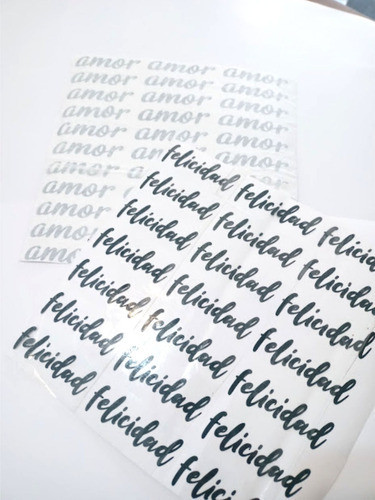 amor amor amor
amor amor amor
amor amor amor
amor amor amor
amor amor amor
amor amor amor
amor
amor
amor
amo
am
felicidad felicidad felici
felicidad felicidad felicidad
felicidad felicidad felicidad
felicidad felicidad felicidad
felicidad felicidad felicidad
felicidad felicidad felicidad
felicidad felicidad felici